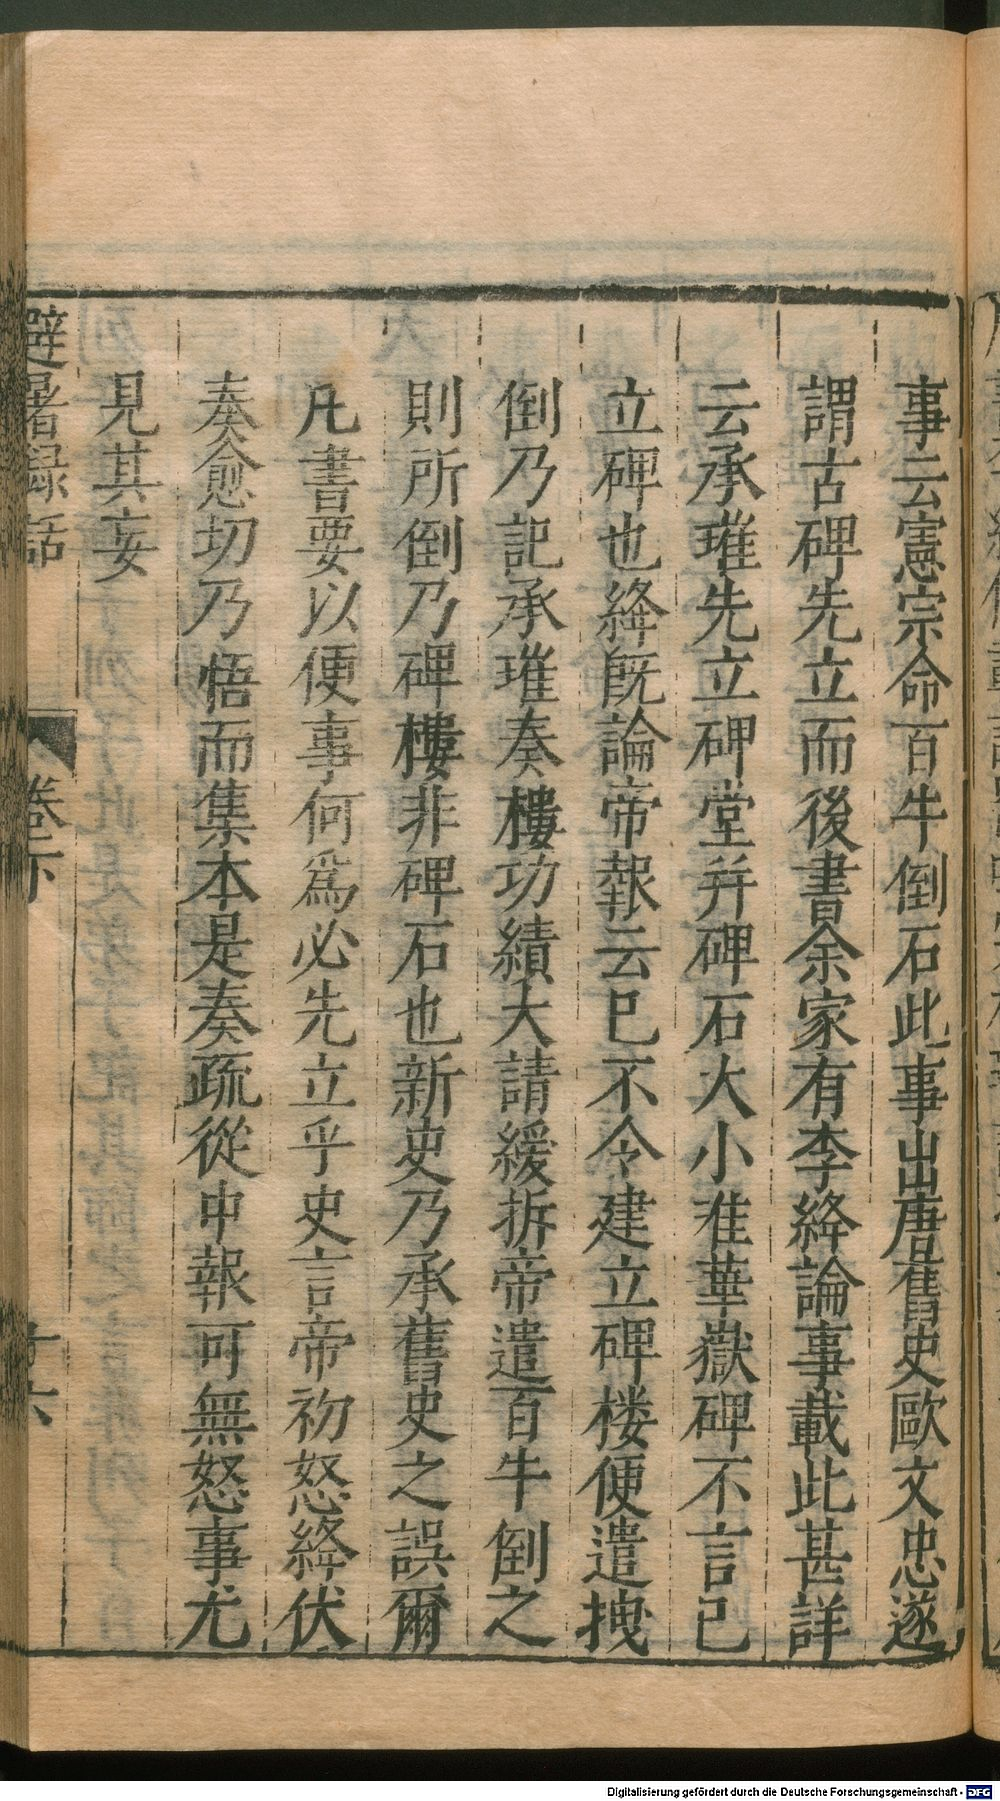 事云憲宗命百牛倒石此事出唐舊史歐文忠遂
謂古碑先立而後書余家有李絳論事載此甚詳
云承璀先立碑堂并碑石大小准華嶽碑不言已
立碑也絳旣論帝報云已不令建立碑楼便遣拽
倒乃記承璀奏樓功績大請緩拆帝遣百牛倒之
則所倒乃碑樓非碑石也新史乃承舊史之誤爾
凡書要以便事何爲必先立乎史言帝初怒絳伏
奏愈切乃悟而集本是奏疏從中報可無怒事尤
見其妄
避暑録話 卷下
Digitalisierung gefördert durch die Deutsche Forschungsgemeinschaft - DFG